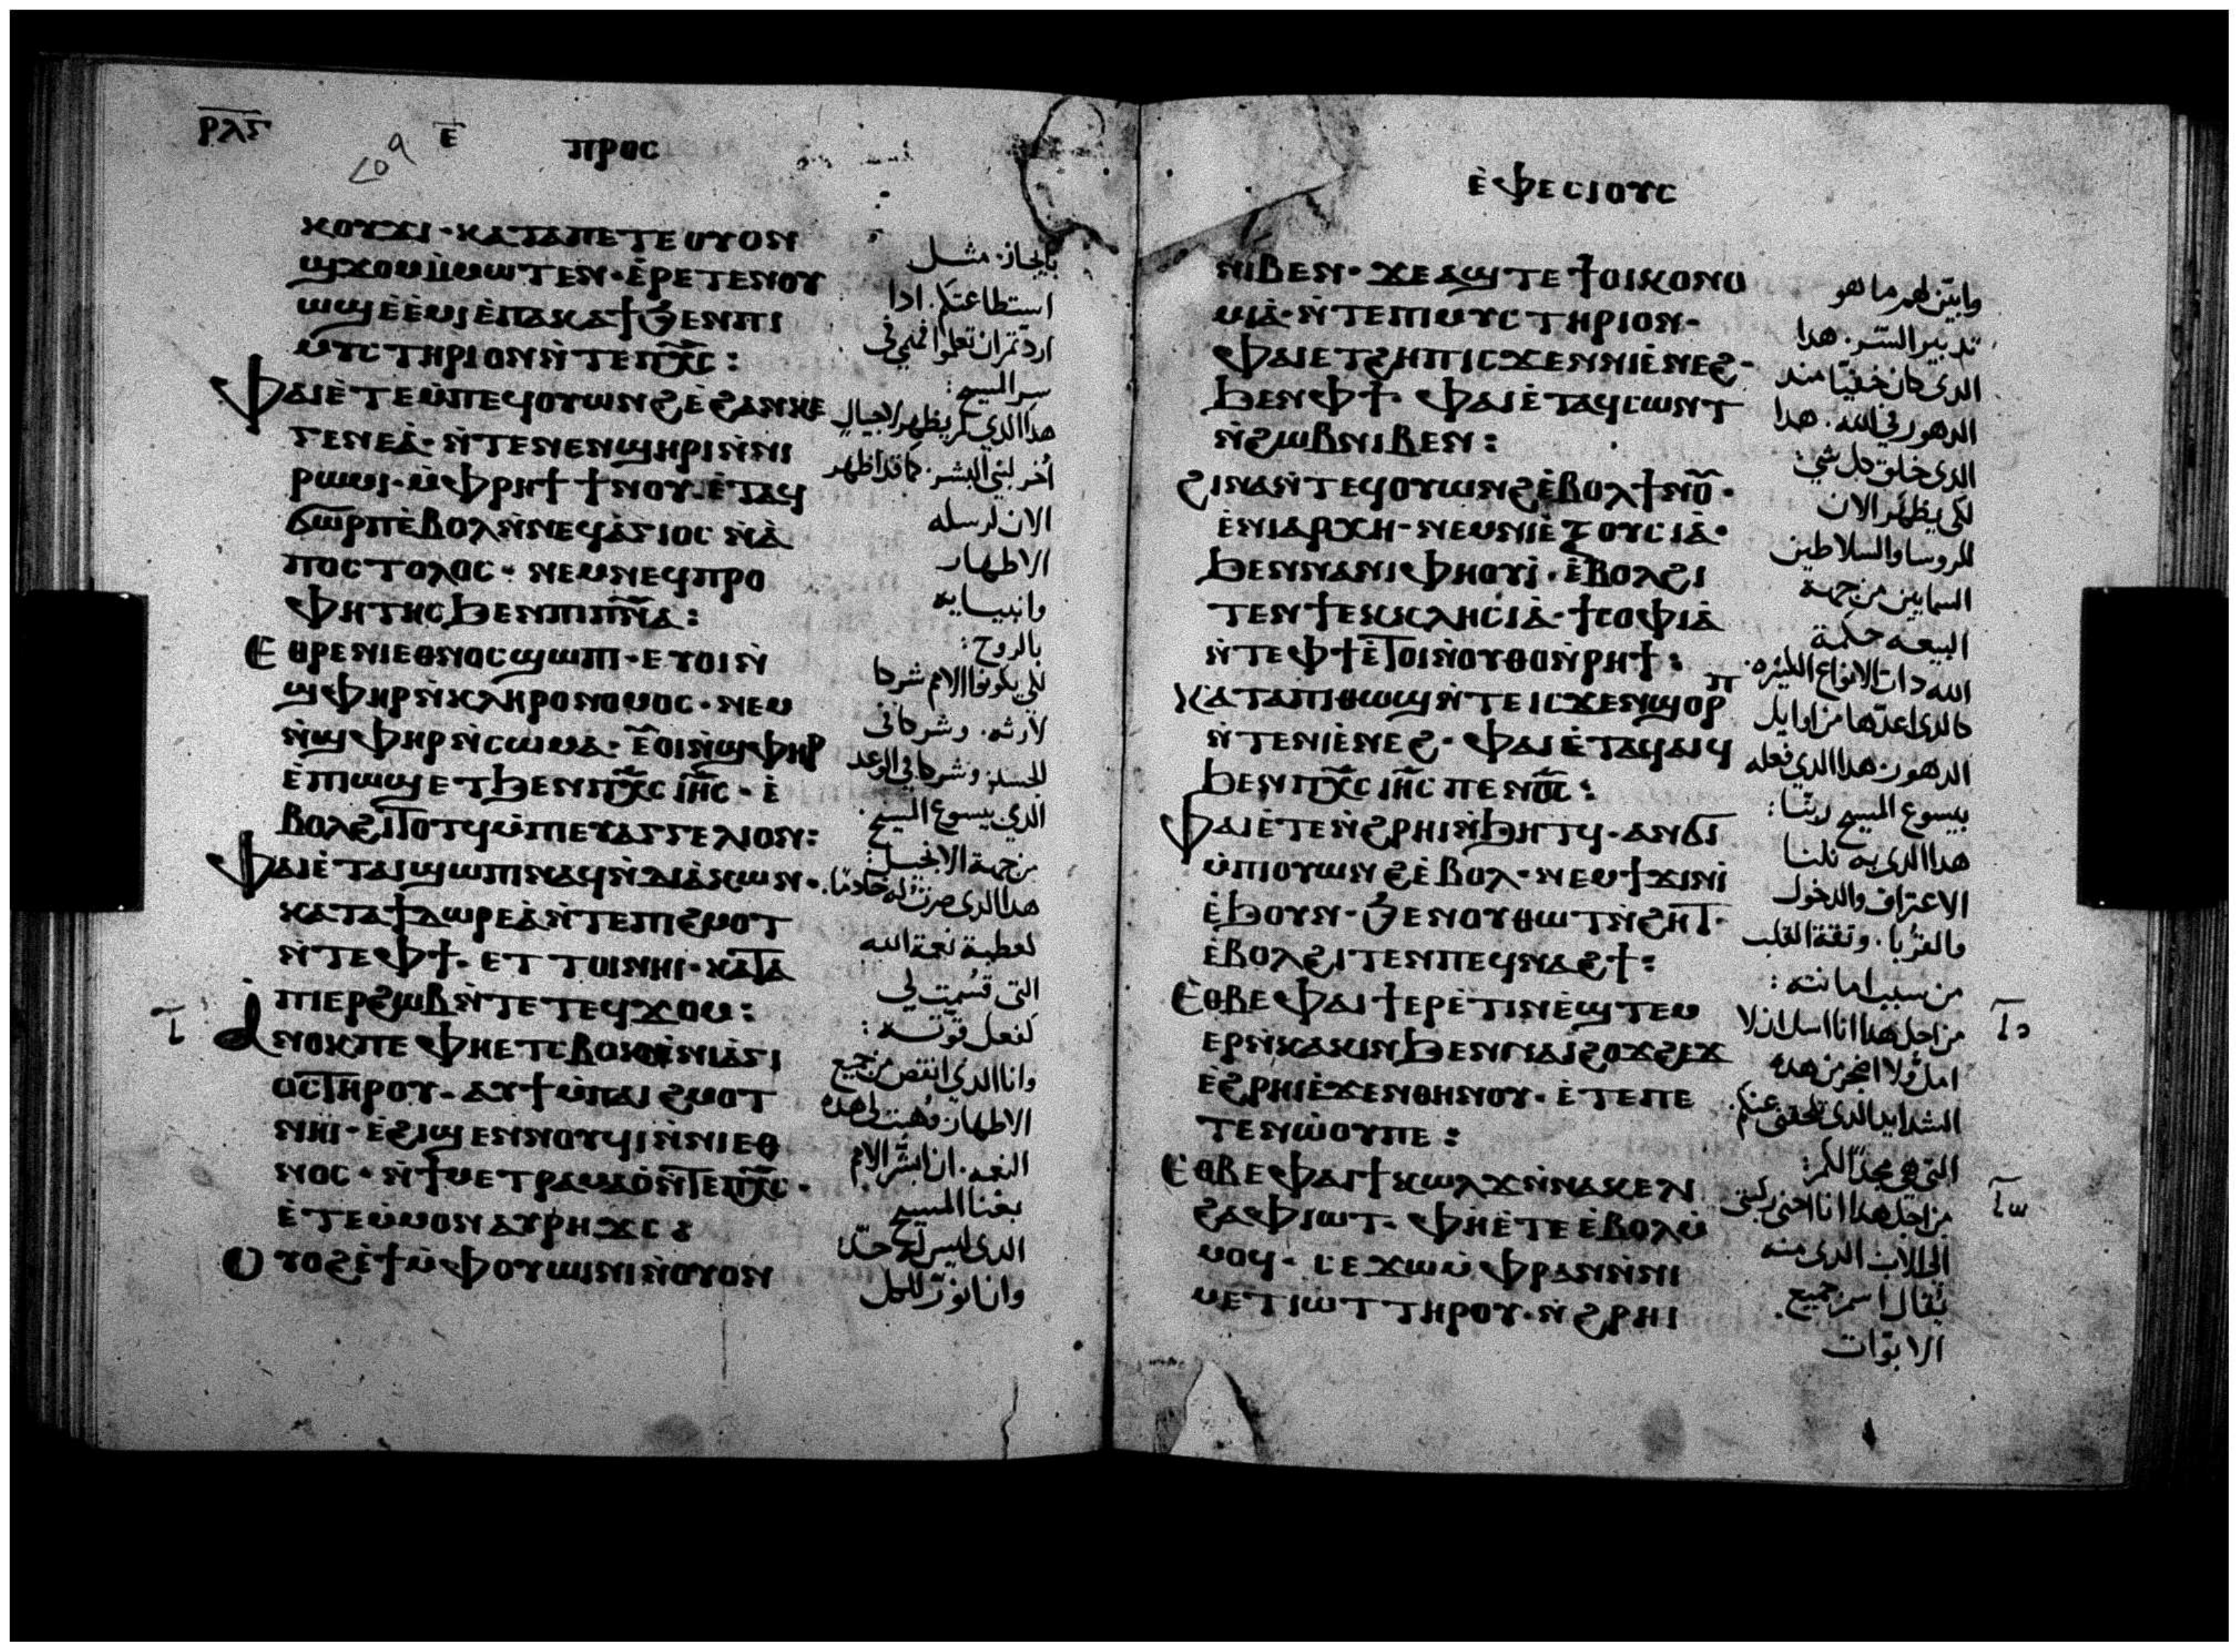 ⲣⲗⲋ ⲉ̅ ⲡⲣⲟⲥ
ⲕⲟⲩϫⲓ · ⲕⲁⲧⲁⲡⲉⲧⲉ ⲟⲩⲟⲛ
ϣϫⲟⲙⲙ̀ⲙⲱⲧⲉⲛ · ⲉ̀ⲣⲉⲧⲉⲛⲟⲩ
ⲱϣ ⲉ̀ⲉ̀ⲙⲓ ⲉ̀ⲡⲁⲕⲁϯ ϧⲉⲛⲡⲓ
ⲙⲩⲥⲧⲏⲣⲓⲟⲛ ⲛ̀ⲧⲉⲡⲭ̅ⲥ̅ :
ⲫⲁⲓ ⲉ̀ⲧⲉⲙ̀ⲡⲉϥⲟⲩⲱⲛϩ ⲉ̀ϩⲁⲛⲕⲉ
ⲅⲉⲛⲉⲁ̀ · ⲛ̀ⲧⲉⲛⲉⲛϣⲏⲣⲓ ⲛ̀ⲛⲓ
ⲣⲱⲙⲓ · ⲙ̀ⲫⲣⲏϯ ϯⲛⲟⲩ ⲉ̀ⲧⲁϥ
ϭⲱⲣⲡ ⲉ̀ⲃⲟⲗ ⲛ̀ⲛⲉϥⲁ̀ⲅⲓⲟⲥ ⲛ̀ⲁ̀
ⲡⲟⲥⲧⲟⲗⲟⲥ · ⲛⲉⲙⲛⲉϥⲡⲣⲟ
ⲫⲏⲧⲏⲥ ϧⲉⲛⲡⲓⲡ̅ⲛ̅ⲁ̅ :
ⲉⲑⲣⲉⲛⲓⲉⲑⲛⲟⲥ ϣⲱⲡⲓ · ⲉⲩⲟⲓ ⲛ̀
ϣⲫⲏⲣ ⲛ̀ⲕⲗⲏⲣⲟⲛⲟⲙⲟⲥ · ⲛⲉⲙ
ⲛ̀ϣⲫⲏⲣ ⲛ̀ⲥⲱⲙⲁ · ⲉⲩⲟⲓ ⲛ̀ϣⲫⲏⲣ
ⲉ̀ⲡⲓⲱϣ ⲉⲧϧⲉⲛⲡⲭ̅ⲥ̅ ⲓⲏ̅ⲥ̅ · ⲉ̀
ⲃⲟⲗϩⲓⲧⲟⲧϥ ⲙ̀ⲡⲓⲉⲩⲁⲅⲅⲉⲗⲓⲟⲛ :
ⲫⲁⲓ ⲉ̀ⲧⲁⲓϣⲱⲡⲓ ⲛⲁϥ ⲛ̀ⲇⲓⲁ̀ⲕⲱⲛ ·
ⲕⲁⲧⲁϯⲇⲱⲣⲉⲁ̀ ⲛ̀ⲧⲉⲡⲓϩⲙⲟⲧ
ⲛ̀ⲧⲉⲫϯ · ⲉⲧⲧⲟⲓ ⲛⲏⲓ · ⲕⲁⲧⲁ
ⲡⲓⲉⲣϩⲱⲃ ⲛ̀ⲧⲉⲧⲉϥϫⲟⲙ :
ⲁⲛⲟⲕⲡⲉ ⲫⲏⲉⲧⲥⲃⲟⲕ ⲛ̀ⲛⲓⲁ̀ⲅⲓ
ⲟⲥ ⲧⲏⲣⲟⲩ · ⲁⲩϯ ⲙ̀ⲡⲁⲓϩⲙⲟⲧ
ⲛⲏⲓ · ⲉ̀ϩⲓϣⲉⲛⲛⲟⲩϥⲓ ⲛ̀ⲛⲓⲉⲑ
ⲛⲟⲥ · ⲛ̀ϯⲙⲉⲧⲣⲁⲙⲁⲟ̀ ⲛ̀ⲧⲉⲡⲭ̅ⲥ̅ ·
ⲉ̀ⲧⲉⲙ̀ⲙⲟⲛ ⲁⲩⲣⲏϫⲥ :
ⲟⲩⲟϩ ⲉ̀ϯⲙ̀ⲫⲟⲩⲱⲓⲛⲓ ⲛ̀ⲟⲩⲟⲛ
بايجاز. مثل
استطاعتكم. ادا
اردتم ان تعلموا فهمي في
سر المسيح:
هدا الدي لم يظهر لاجيالٍ
أخر لبني البشر. كما قد اظهر
الان لرسله
الاطهار
وانبيايه
بالروح:
لكي يكونوا الامم شركا
لارثه. وشركا في
الجسد. وشركا في الوعد
الدي بيسوع المسيح.
من جهة الانجيل:
هدا الدي صرت له خادمًا.
لعطية نعمة الله
التي قسُمت لي
كفعل قوته:
وانا الدي انقص من جميع
الاطهار وُهبت لي هده
النعمه. ان ابشر الامم
بغنا المسيح
الدي ليس له حدّ:
وانا نوّر للكل
ⲉ̀ⲫⲉⲥⲓⲟⲩⲥ
ⲛⲓⲃⲉⲛ · ϫⲉ ⲁϣⲧⲉ ϯⲟⲓⲕⲟⲛⲟ
ⲙⲓⲁ̀ · ⲛ̀ⲧⲉⲡⲓⲙⲩⲥⲧⲏⲣⲓⲟⲛ ·
ⲫⲁⲓ ⲉⲧϩⲏⲡ ⲓⲥϫⲉⲛ ⲛⲓⲉ̀ⲛⲉϩ ·
ϧⲉⲛⲫϯ · ⲫⲁⲓ ⲉ̀ⲧⲁϥⲥⲱⲛⲧ
ⲛ̀ϩⲱⲃ ⲛⲓⲃⲉⲛ :
ϩⲓⲛⲁ ⲛ̀ⲧⲉϥⲟⲩⲱⲛϩ ⲉ̀ⲃⲟⲗ ϯⲛⲟ̅ⲩ ·
ⲉ̀ⲛⲓⲁⲣⲭⲏ · ⲛⲉⲙⲛⲓⲉ̀ⲝⲟⲩⲥⲓⲁ̀ ·
ϧⲉⲛⲛⲁⲛⲓⲫⲏⲟⲩⲓ̀ · ⲉ̀ⲃⲟⲗϩⲓ
ⲧⲉⲛϯⲉⲕⲕⲗⲏⲥⲓⲁ̀ · ϯⲥⲟⲫⲓⲁ̀
ⲛ̀ⲧⲉⲫϯ ⲉ̀ⲧⲟⲓ ⲛ̀ⲟⲩⲑⲟ ⲛ̀ⲣⲏϯ :
ⲕⲁⲧⲁⲡⲓⲑⲱϣ ⲛ̀ⲧⲉ ⲓⲥϫⲉⲛϣⲟⲣⲡ
ⲛ̀ⲧⲉⲛⲓⲉ̀ⲛⲉϩ · ⲫⲁⲓ ⲉ̀ⲧⲁϥⲁⲓϥ
ϧⲉⲛⲡⲭ̅ⲥ̅ ⲓⲏ̅ⲥ̅ ⲡⲉⲛⲟ̅ⲥ̅ :
ⲫⲁⲓ ⲉ̀ⲧⲉⲛ̀ϩⲣⲏⲓ ⲛ̀ϧⲏⲧϥ · ⲁⲛϭⲓ
ⲙ̀ⲡⲓⲟⲩⲱⲛϩ ⲉ̀ⲃⲟⲗ · ⲛⲉⲙϯϫⲓⲛⲓ̀
ⲉ̀ϧⲟⲩⲛ · ϧⲉⲛⲟⲩⲑⲱⲧ ⲛ̀ϩⲏⲧ ·
ⲉ̀ⲃⲟⲗϩⲓⲧⲉⲛⲡⲉϥⲛⲁϩϯ :
ⲉ̀ⲑⲃⲉⲫⲁⲓ ϯⲉⲣⲉ̀ⲧⲓⲛ ⲉ̀ϣⲧⲉⲙ
ⲉⲣⲛ̀ⲕⲁⲕⲓⲛ ϧⲉⲛⲛⲁⲓϩⲟϫϩⲉϫ
ⲉ̀ϩⲣⲏⲓ ⲉ̀ϫⲉⲛⲑⲏⲛⲟⲩ · ⲉ̀ⲧⲉⲡⲉ
ⲧⲉⲛⲱ̀ⲟⲩⲡⲉ :
ⲉ̀ⲑⲃⲉⲫⲁⲓ ϯⲕⲱⲗϫ ⲛ̀ⲛⲁⲕⲉⲗⲓ
ϩⲁⲫⲓⲱⲧ · ⲫⲏⲉ̀ⲧⲉ ⲉ̀ⲃⲟⲗ ⲙ̀
ⲙⲟϥ · ⲥⲉϫⲱ ⲙ̀ⲫⲣⲁⲛ ⲛ̀ⲛⲓ
ⲙⲉⲧⲓⲱⲧ ⲧⲏⲣⲟⲩ · ⲛ̀ϩⲣⲏⲓ
وابيّن لهم ما هو
تدبير السّر. هدا
الدي كان خفيّا مند
الدهور في الله. هدا
الدي خلق كل شي:
لكي يظهَر الان
للروسا والسلاطين
السمايين من جهة
البيعه حكمة
الله دات الانواع الكثيره.
كالدي اعدّها من اوايل
الدهور. هدا الدي فعله
بيسوع المسيح ربّنا:
هدا الدي به نلنا
الاعتراف والدخول
والقرُبا. وثقة القلب
من سبب امانته:
من اجل هدا انا اسل ان لا
امل ولا اضجر من هده
الشدايد الدي تلحقني عنكم.
التي هي مجدًا لكم:
من اجل هدا انا احني ركبتي
الى الاب الدي منه
يُقال اسم جميع
الابوّات